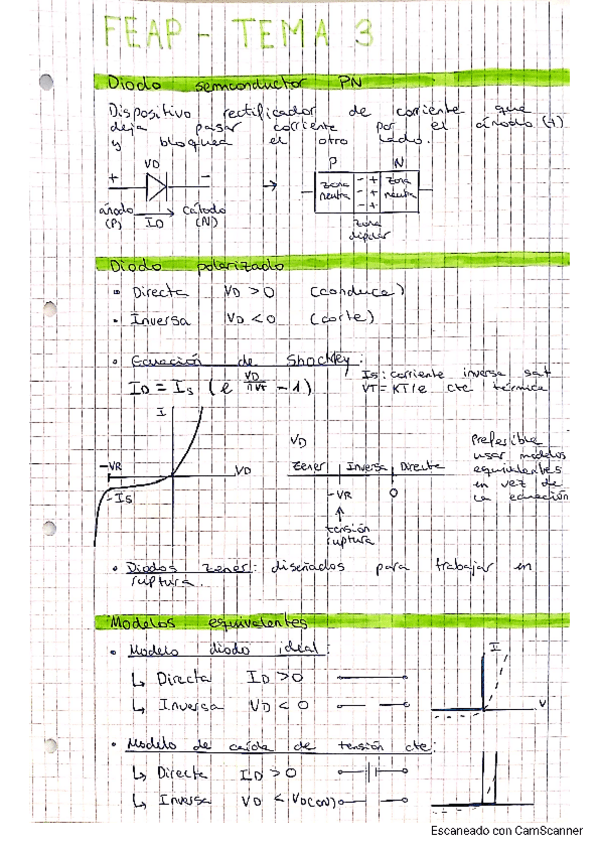 FEAP - TEMA 3
Diodo semiconductor PN
Dispositivo rectificador de corriente que
deja pasar corriente por el ánodo (+)
y bloquea el otro lado.
VD
+ -
ánodo cátodo
(P) ID (N)
P N
zona neutra - + zona neutra
- +
- +
zona
dipolar
Diodo polarizado
• Directa VD > 0 (conduce)
• Inversa VD < 0 (corte)
• Ecuación de Shockley:
ID = Is (e^(VD/nVT) - 1)
Is: corriente inversa sat
VT = KT/e cte térmica
I
-VR VD
-Is
VD
Zener Inversa Directa
-VR 0
↑
tensión
ruptura
Preferible
usar modelos
equivalentes
en vez de
la ecuación
• Diodos zener: diseñados para trabajar en
ruptura.
Modelos equivalentes
• Modelo diodo ideal:
↳ Directa ID > 0
↳ Inversa VD < 0
I
V
• Modelo de caída de tensión cte:
↳ Directa ID > 0
↳ Inversa VD < VD(ON)
Escaneado con CamScanner